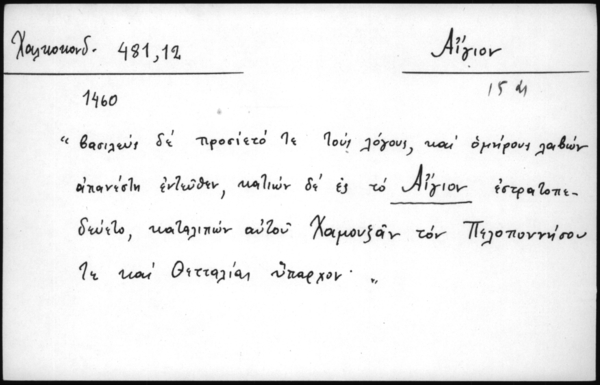 Χαλκοκονδ. 481,12
Αἴγιον
15 αἰ
1460
“βασιλεύς δέ προσίετό τε τούς λόγους, καί ὁμήρους λαβών
ἀπανέστη ἐντεῦθεν, κατιών δέ ἐς τό Αἴγιον ἐστρατοπε-
δεύετο, καταλιπών αὐτοῦ Χαμουζᾶν τόν Πελοποννήσου
τε καί Θετταλίας ὕπαρχον· „